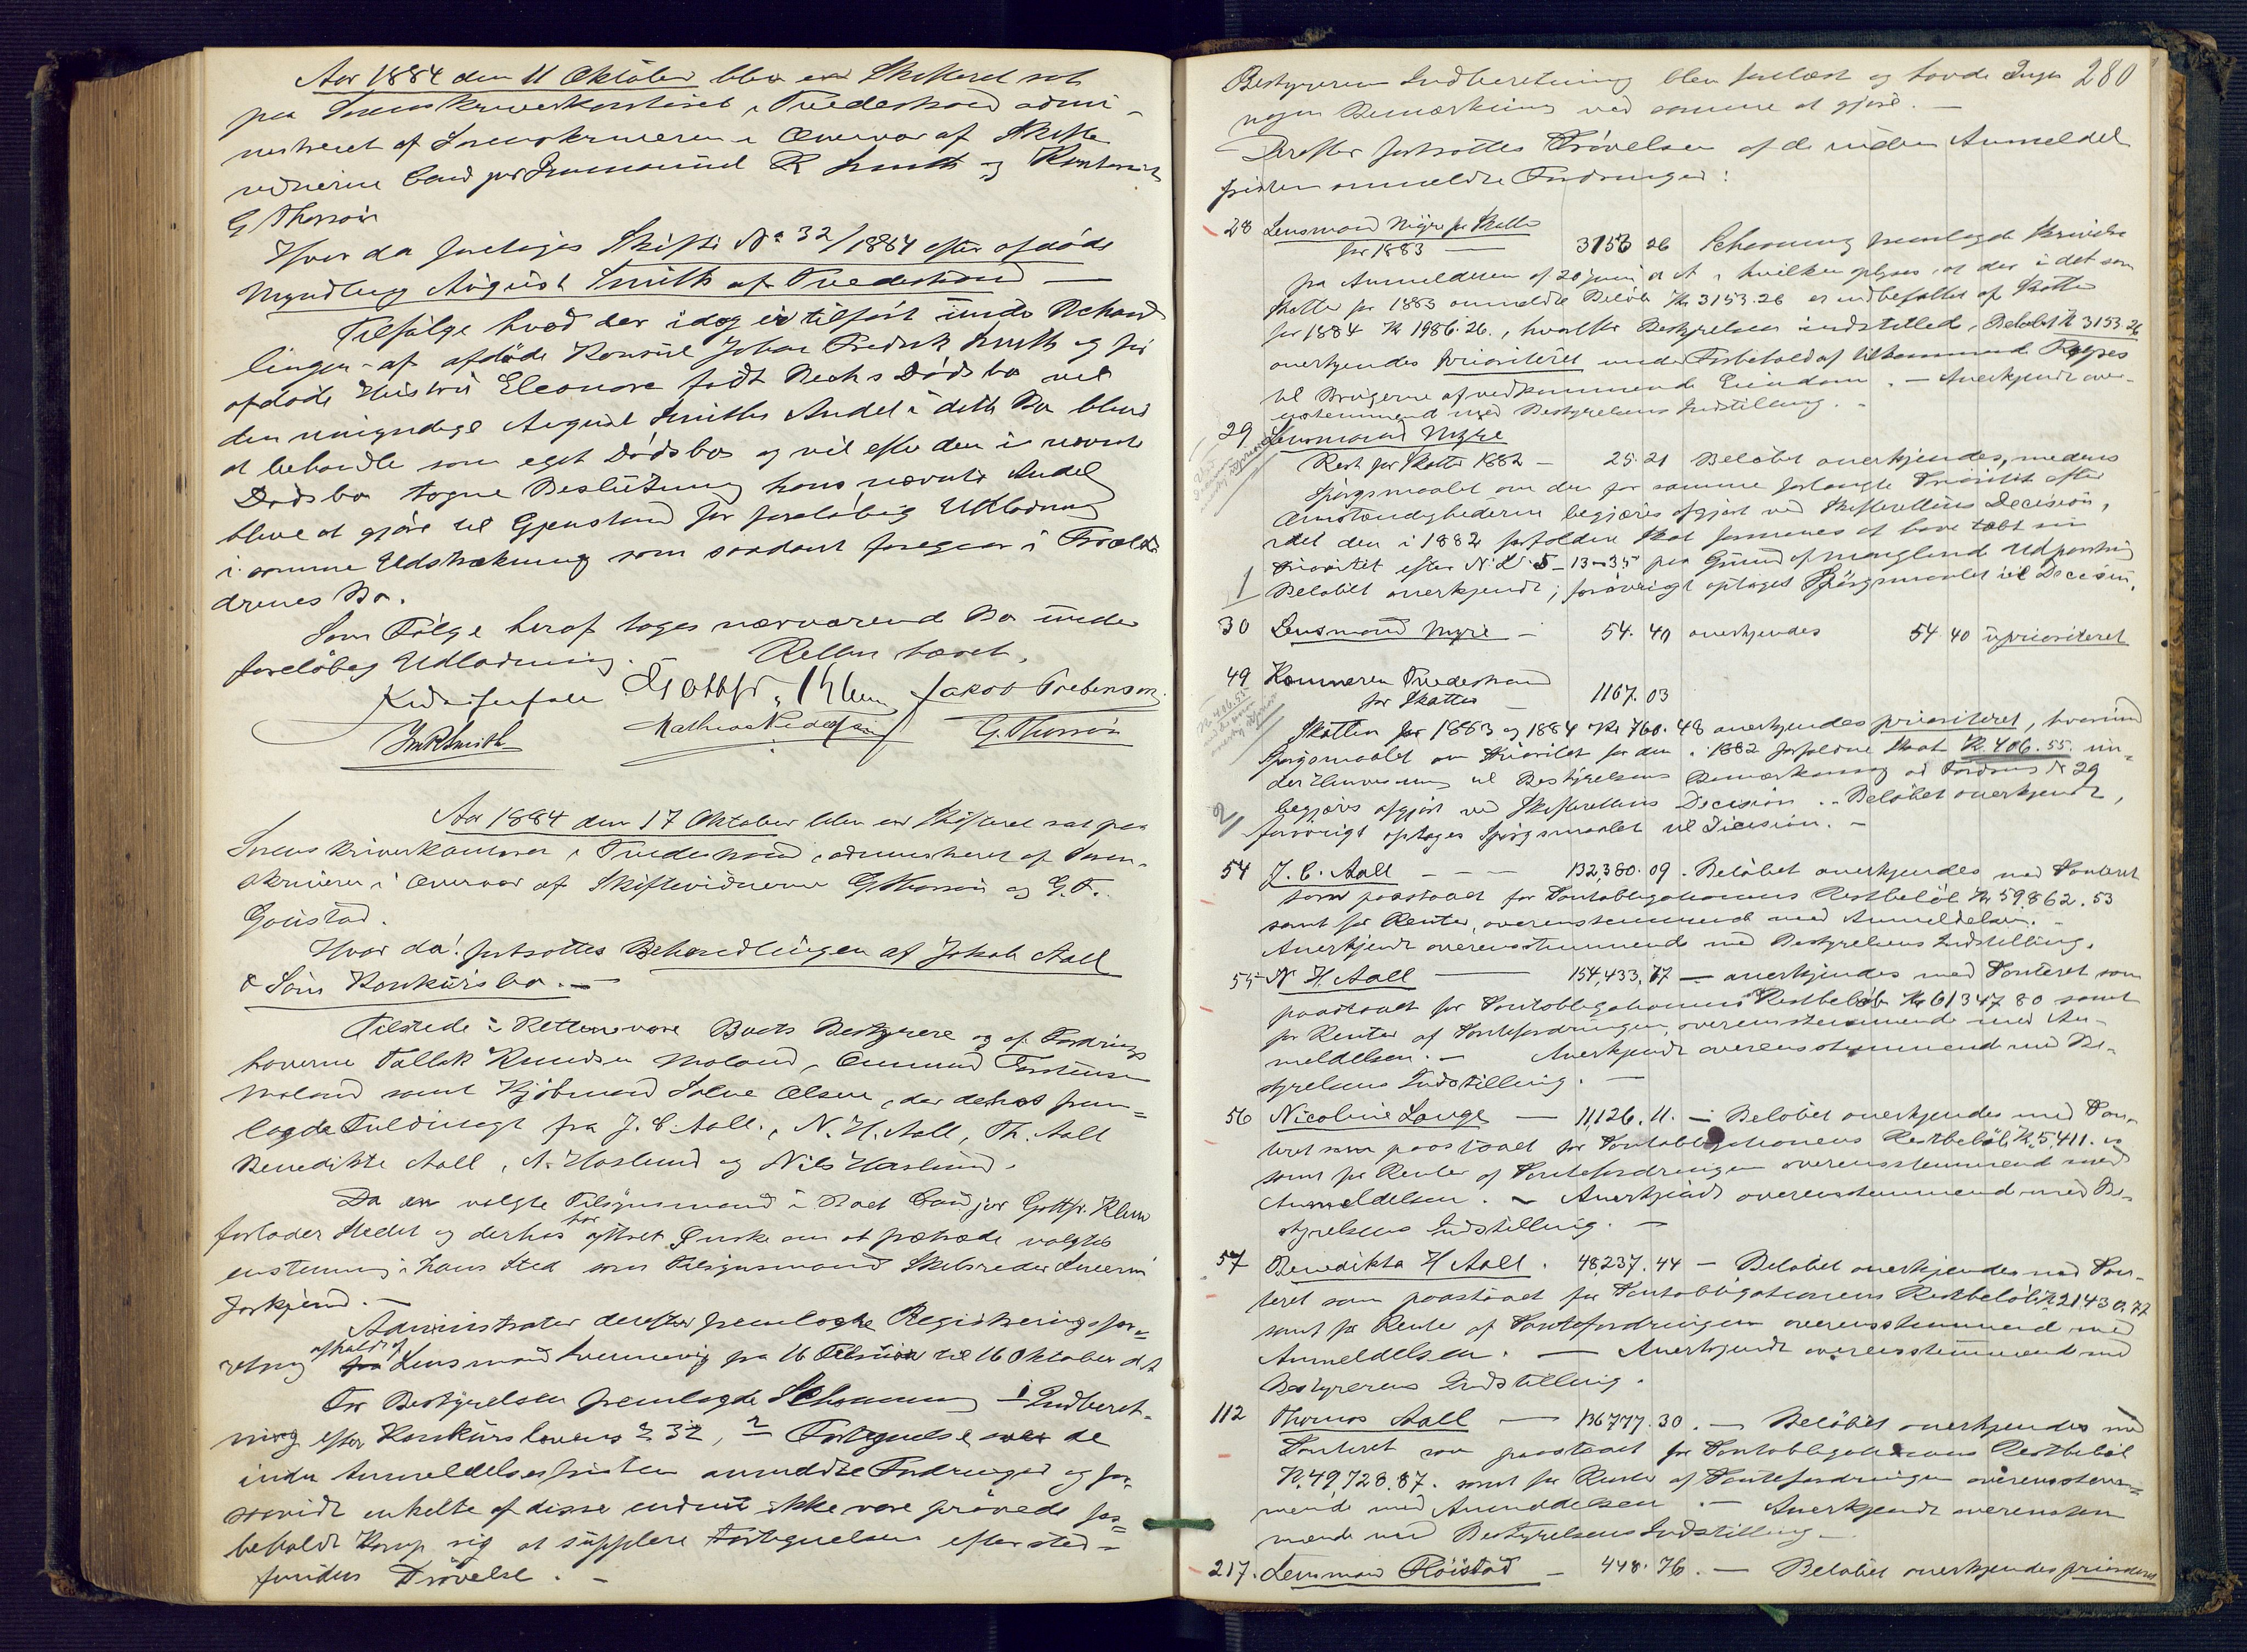 Aar 1884 den 11 Oktober blev en Skifteret sat
paa Sorenskriverkontoret i Tvedestrand admi-
nistreret af Sorenskriveren i Overvær af Skifte
vidnerne Cand jur Immanuel R Smith og Kontorist
G Thorsøn
Hvor da foretoges Skifte No 32/1884 efter afdøde
Myndling August Smith af Tvedestrand —
Tilfølge hvad der idag er tilført under Behand
lingen af afdøde Konsul Johan Fredrik Smith og før
afdøde Hustru Eleonore født Bechs Dødsbo vil
den umyndige August Smiths Andel i dette Bo blive
at behandle som eget Dødsbo og vil efter den i nævnte
Dødsbo tagne Beslutning hans nævnte Andel
blive at gjøre til Gjenstand for foreløbig Udlodning
i samme Udstrækning som saadant foregaar i Foræl-
drenes Bo.
Som Følge heraf toges nærværende Bo under
foreløbig Udlodning. — Retten hævet.
Gottfr. Klem Jakob Trebensen
ImRSmith Mathias Pedersen G. Thorsøn
Aar 1884 den 17 Oktober blev en Skifteret sat paa
Sorenskriverkontoret i Tvedestrand, administreret af Soren-
skriveren i Overvær af Skiftevidnerne G. Thorsøn og G. F.
Goustad.
Hvor da! fortsattes Behandlingen af Jakob Aall
& Søns Konkursbo. —
Tilstede i Retten vare Boets Bestyrere og af Fordrings
haverne Tallak Knudsen Moland, Omund Torstensen
Moland samt Kjøbmand Salve Olsen, der derhos frem=
lagde Fuldmagt fra J. C. Aall, N. H. Aall, Th. Aall
Benedikte Aall, A. Haslund og Nils Haslund.
Da en valgte Tilsynsmand i Boet Cand jur Gottfr. Klem
forlader Stedet og derhos har yttret Ønske om at fratræde valgtes
enstemmig i hans Sted som Tilsynsmand Skibsreder Severin
Forkjend. —
Administrator derefter fremlagde Registreringsfor=
retning afholdt af Lensmand Svennevig fra 16 Februar til 16 Oktober d. A
For Bestyrelsen fremlagde Schonning 1 Indberet-
ning efter Konkurslovens § 32, 2 Fortegnelse over de
inden Anmeldelsesfristen anmeldte Fordringer og for
saavidt enkelte af disse endnu ikke vare prøvede for=
beholdt Komp sig at supplere Fortegnelsen efter sted=
funden Prøvelse. —
280
Bestyrerens Indberetning blev forelæst og havde Ingen
nogen Bemærkning ved samme at gjøre. —
Derefter fortsattes Prøvelsen af de inden Anmeldel
fristen anmeldte Fordringer:
28 Lensmand Myhre for Skatte
for 1883 — 3153 26 Schonning fremlagde Skrivelse
fra Anmelderen af 20 Juni d A i hvilken oplyses, at der i det som
Skatte for 1883 anmeldte Beløb Kr 3153.26 er indbefattet af Skatte
for 1884 Kr 1986.26, hvorefter Bestyrelsen indstilled, Beløbet Kr 3153 26
anerkjendes prioriteret under Forbehold af tilkommende Regres
til Brugerne af vedkommende Eiendom. — Anerkjendt over-
ensstemmend med Bestyrelsens Indstilling. —
29 Lensmand Myhre
Rest for Skatte 1882 — 25.21 Beløbet anerkjendes, medens
Spørgsmaalet om den for samme forlangte Prioritet efter
Omstændighederne begjæres afgjort ved Skifterettens Decision,
idet den i 1882 forfaldne Skat formenes at have tabt sin
Prioritet efter N. L. 5-13-35 paa Grund af manglende Udpantning
1 Beløbet anerkjendt; forøvrigt optages Spørgsmaalet til Decision.
30 Lensmand Myhre — 54.40 anerkjendes 54.40 uprioriteret
49 Kæmneren Tvedestrand
for Skatter — 1167.03
Skatten for 1883 og 1884 Kr 760.48 anerkjendes prioriteret, hvorimod
Spørgsmaalet om Prioritet for den i 1882 forfaldne Skat Kr 406.55. un-
der Henvisning til Bestyrelsens Bemærkning ad Fordring No 29
begjæres afgjort ved Skifterettens Decision. — Beløbet anerkjendt,
2 forøvrigt optages Spørgsmaalet til Decision. —
54 J. C. Aall — — — 132,380.09. Beløbet anerkjendes med Panteret
som paastaaet for Pantobligationens Restbeløb Kr 59,862.53
samt for Renter, overensstemmende med Anmeldelsen. —
Anerkjendt overensstemmende med Bestyrelsens Indstilling.
55 N. H. Aall — 154,433.77 — anerkjendes med Panteret som
paastaaet for Pantobligationens Restbeløb Kr 61347 80 samt
for Renter af Pantefordringen, overensstemmende med An-
meldelsen. — Anerkjendt overensstemmende med Be-
styrelsens Indstilling. —
56 Nicoline Lange — 11,126.11. — Beløbet anerkjendes med Pan-
teret som paastaaet for Pantobligationens Restbeløb Kr 5,411.
samt for Renter af Pantefordringen overensstemmend med
Anmeldelsen. — Anerkjendt overensstemmend med Be-
styrelsens Indstilling. —
57 Benedikta H Aall. 48,237.44 — Beløbet anerkjendes med Pan-
teret som paastaaet for Pantobligationens Restbeløb Kr 21430.77
samt for Renter af Pantefordringen overensstemmend med
Anmeldelsen. — Anerkjendt overensstemmende med
Bestyrerens Indstilling.
112 Thomas Aall — 136777.30. — Beløbet anerkjendes med
Panteret som paastaaet for Pantobligationens Restbeløb
Kr 49,728.87. samt for Renter af Pantefordringen overensstem=
mende med Anmeldelsen. — Anerkjendt overensstem
mende med Bestyrelsens Indstilling. —
217. Lensmand Røistad — 448.76. — Beløbet anerkjendes prioriteret